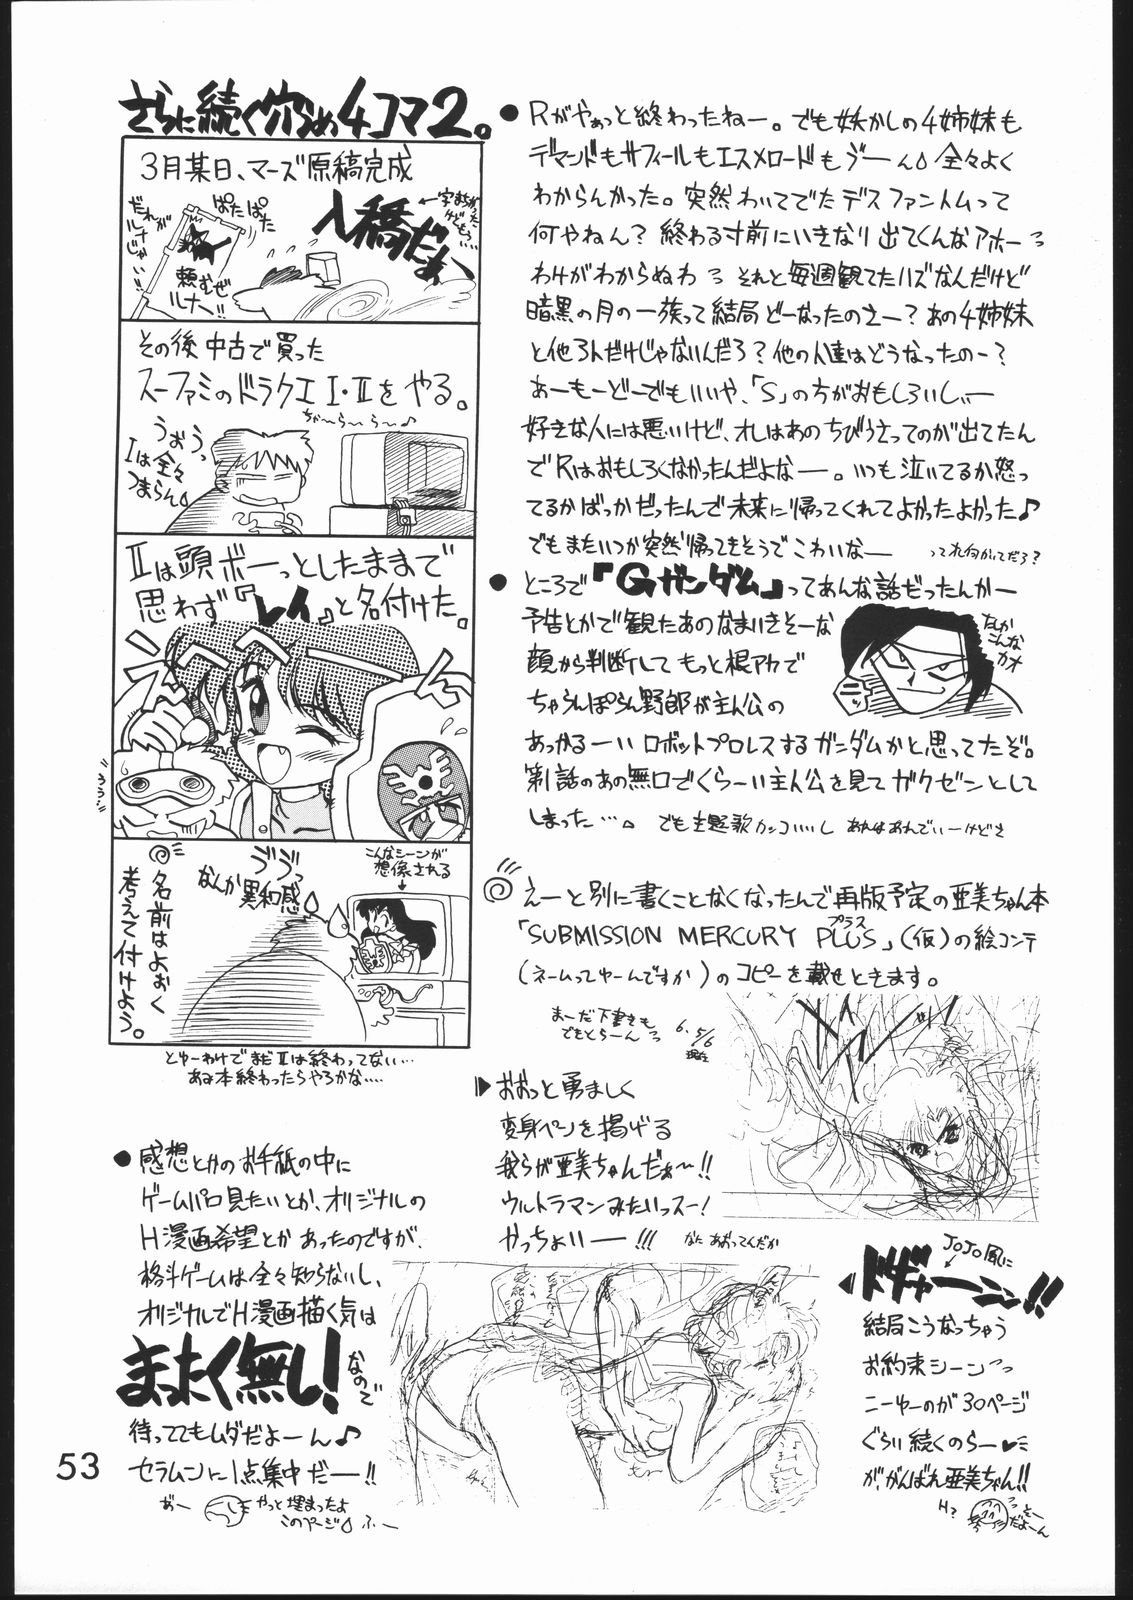 さらに続く穴うめ4コマ2。
3月某日、マーズ原稿完成
ぱたぱた
だれが
ルナじゃい
頼むぜ
ルナへ!!
入稿だぁ
その後中古で買った
スーファミのドラクエI・IIをやる。
ちゃ～ら～ら～♪
うぉうっ
Iは全々
つまらん
IIは頭ボーっとしたままで
思わず『レイ』と名付けた。
こんなシーンが
想像される
ヴヴっ
なんか異和感
名前はよおく
考えて付けよう。
とゆーわけでまだIIは終わってない…
あみ本終わったらやろかな….
●Rがやぁっと終わったねー。でも妖かしの4姉妹も
デマンドもサフィールもエスメロードもゔーん 全々よく
わからんかった。突然わいてでたデスファントムって
何やねん?終わる寸前にいきなり出てくんなアホーっ
わけがわからぬわっ それと毎週観てたハズなんだけど
暗黒の月の一族って結局どーなったのさー?あの4姉妹
と他3人だけじゃないんだろ?他の人達はどうなったのー?
あーもーどーでもいいや、「S」の方がおもしろいしぃー
好きな人には悪いけど、オレはあのちびうさってのが出てたん
でRはおもしろくなかったんだよなー。いつも泣いてるか怒っ
てるかばっかだったんで未来に帰ってくれてよかったよかった♪
でもまたいつか突然帰ってきそうでこわいなー
●ところで『Gガンダム』ってあんな話だったんかー
予告とかで観たあのなまいきそーな
顔から判断してもっと根アカで
ちゃらんぽらん野郎が主人公の
あっかるーいロボットプロレスするガンダムかと思ってたぞ。
第1話のあの無口でくらーい主人公を見てガクゼンとして
しまった…。 でも主題歌カッコいいし あれはあれでいーけどさ
なんか
こんな
カオ
えーと別に書くことなくなったんで再版予定の亜美ちゃん本
「SUBMISSION MERCURY PLUS」(仮)の絵コンテ
プラス
(ネームってゆーんですか)のコピーを載せときます。
まーだ下書きも
でもとらーんっ
6.5/6
現在
▶おおっと勇ましく
変身ペンを掲げる
我らが亜美ちゃんだぁ～!!
ウルトラマンみたいっスー!
かっちょいいー!!! なにあおってんだか
JoJo風に
ドギャーーン!!
結局こうなっちゃう
お約束シーンっ
こーゆーのが30ページ
ぐらい続くのらー♥
が、がんばれ亜美ちゃん!!
●感想とかのお手紙の中に
ゲームパロ見たいとか、オリジナルの
H漫画希望とかあったのですが、
格斗ゲームは全々知らないし、
オリジナルでH漫画描く気は
まったく無し!なので
待っててもムダだよーん♪
セラムンに1点集中だー!!
おー
やっと埋まったよ
このページ ふー
53